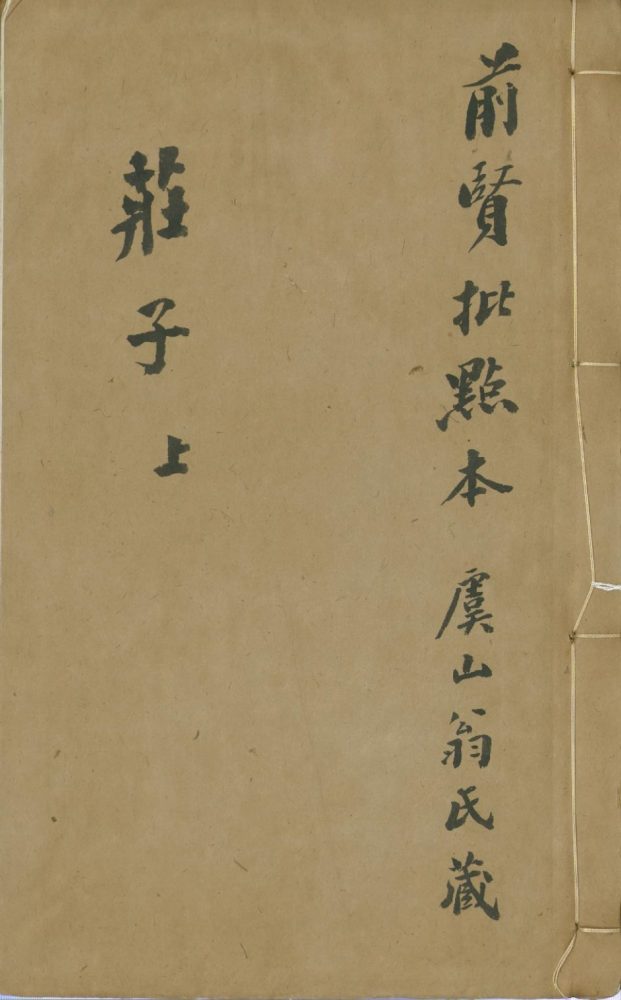 前賢批點本 虞山翁氏藏
莊子 上